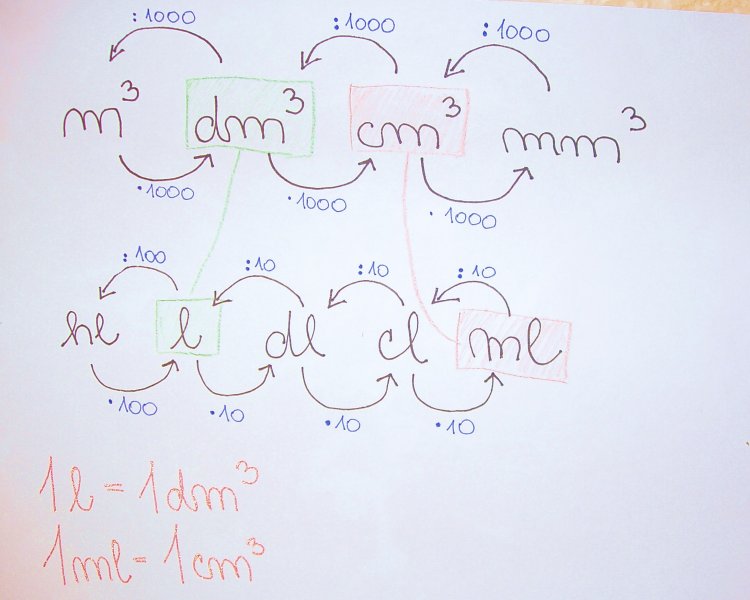 :1000 :1000 :1000
m³ dm³ cm³ mm³
·1000 ·1000 ·1000
:100 :10 :10 :10
hl l dl cl ml
·100 ·10 ·10 ·10
1l = 1dm³
1ml = 1cm³